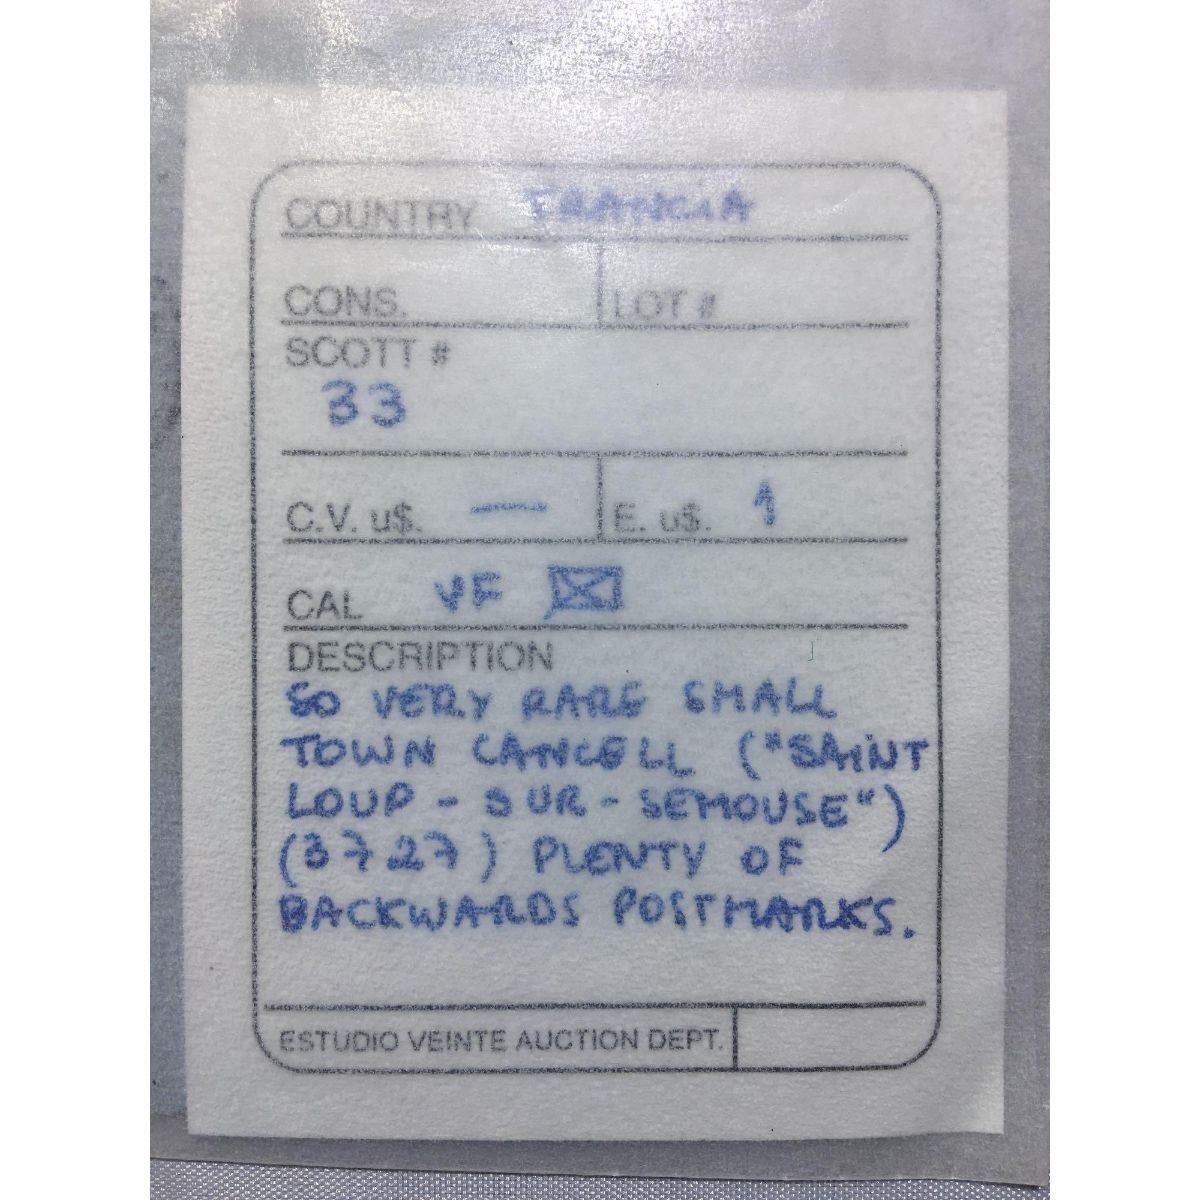 COUNTRY FRANCIA
CONS. LOT #
SCOTT #
33
C.V. u$. — E. u$. 1
CAL VF
DESCRIPTION
SO VERY RARE SMALL
TOWN CANCELL ("SAINT
LOUP - SUR - SEMOUSE")
(3727) PLENTY OF
BACKWARDS POSTMARKS.
ESTUDIO VEINTE AUCTION DEPT.